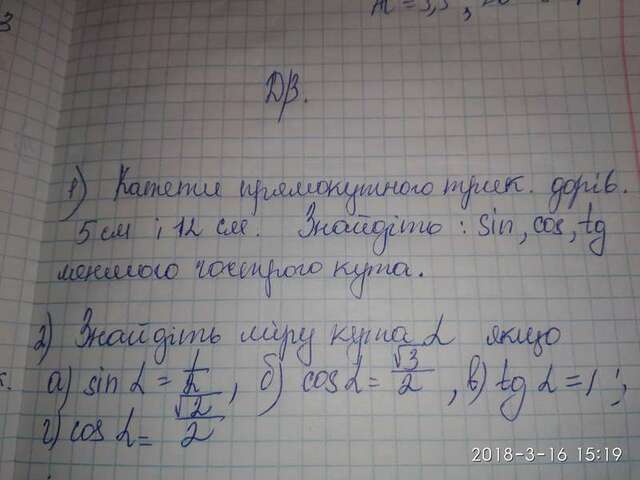 ДВ.
1) Катети прямокутного трик. дорів.
5 см і 12 см. Знайдіть: sin, cos, tg
меншого гострого кута.
2) Знайдіть міру кута α якщо
а) sin α = 1/2, б) cos α = √3/2, в) tg α = 1;
г) cos α = √2/2
2018-3-16 15:19